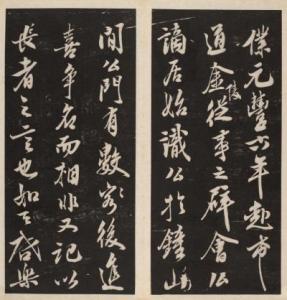 僕元豐六年赴希
道金陵從事之辟會公
謫居始識公於鐘山
間公門有數客後進
喜爭名而相非又記以
長者之言也如下啓樂